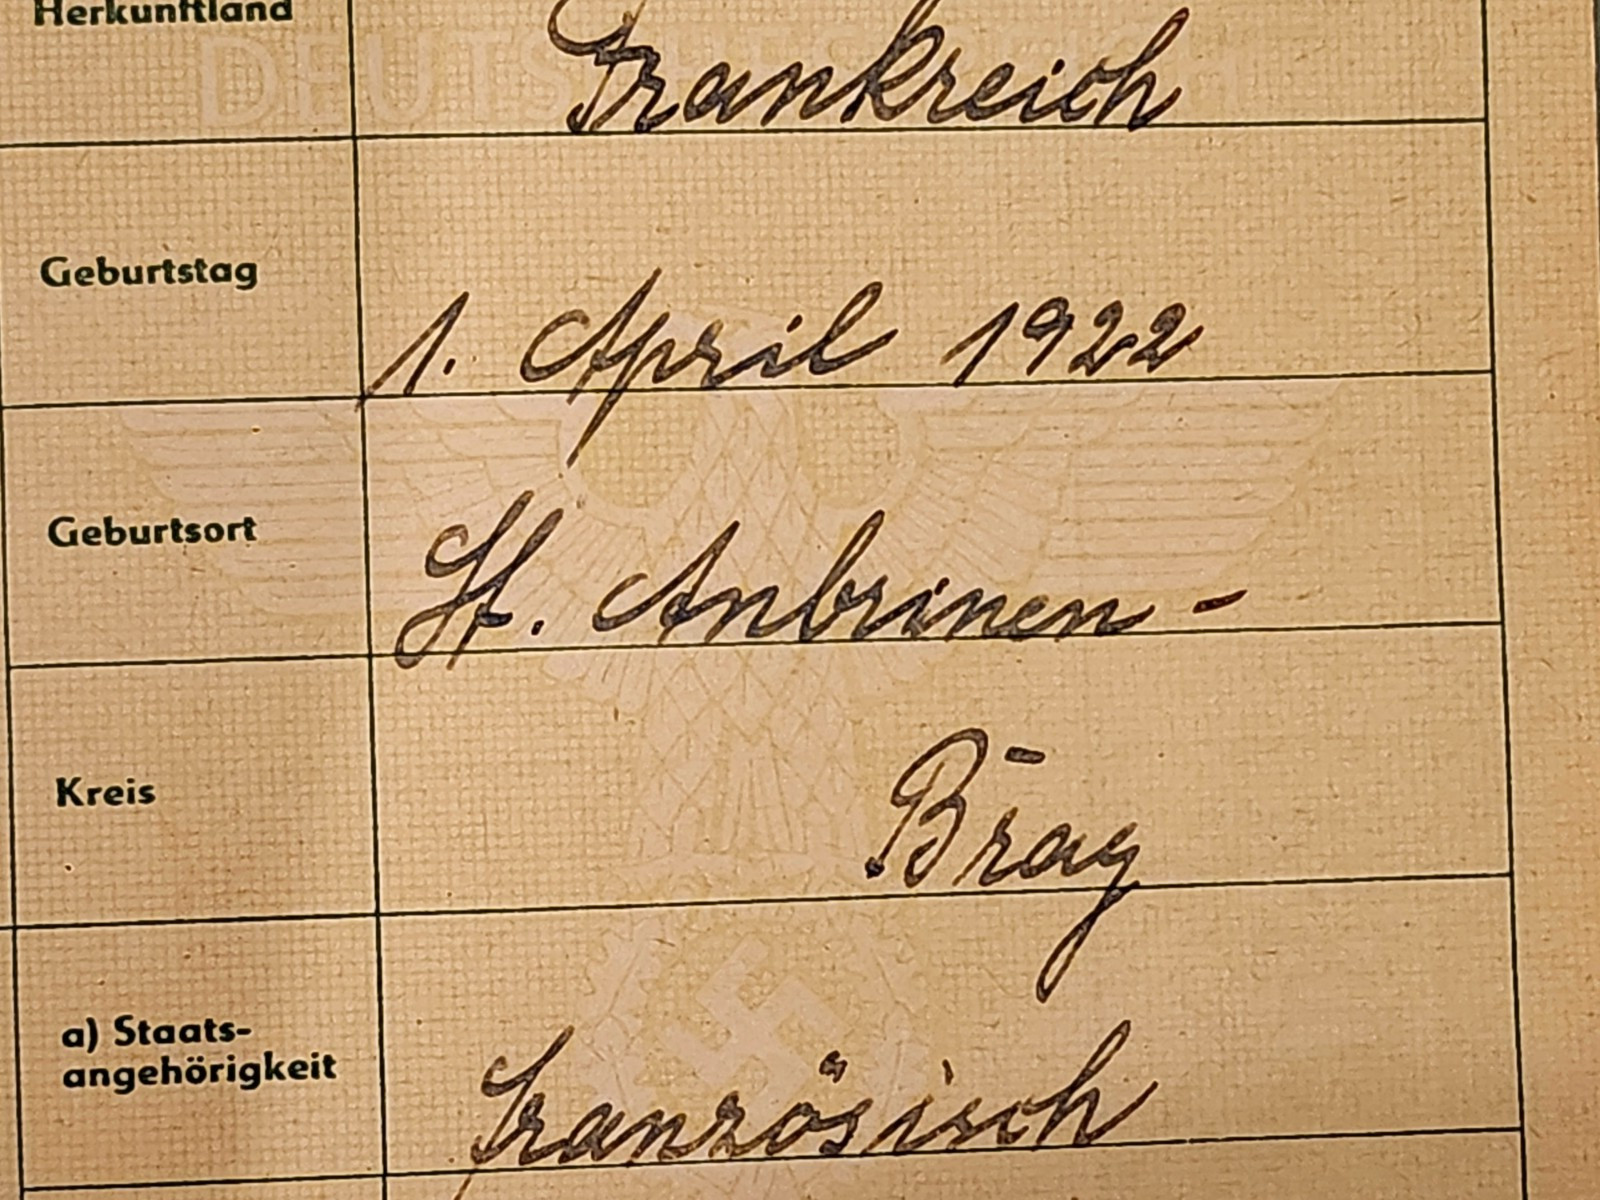 Herkunftland Frankreich
DEUTSCHES REICH
Geburtstag 1. April 1922
Geburtsort St. Anbrinen -
Kreis Bray
a) Staats-
angehörigkeit Französisch